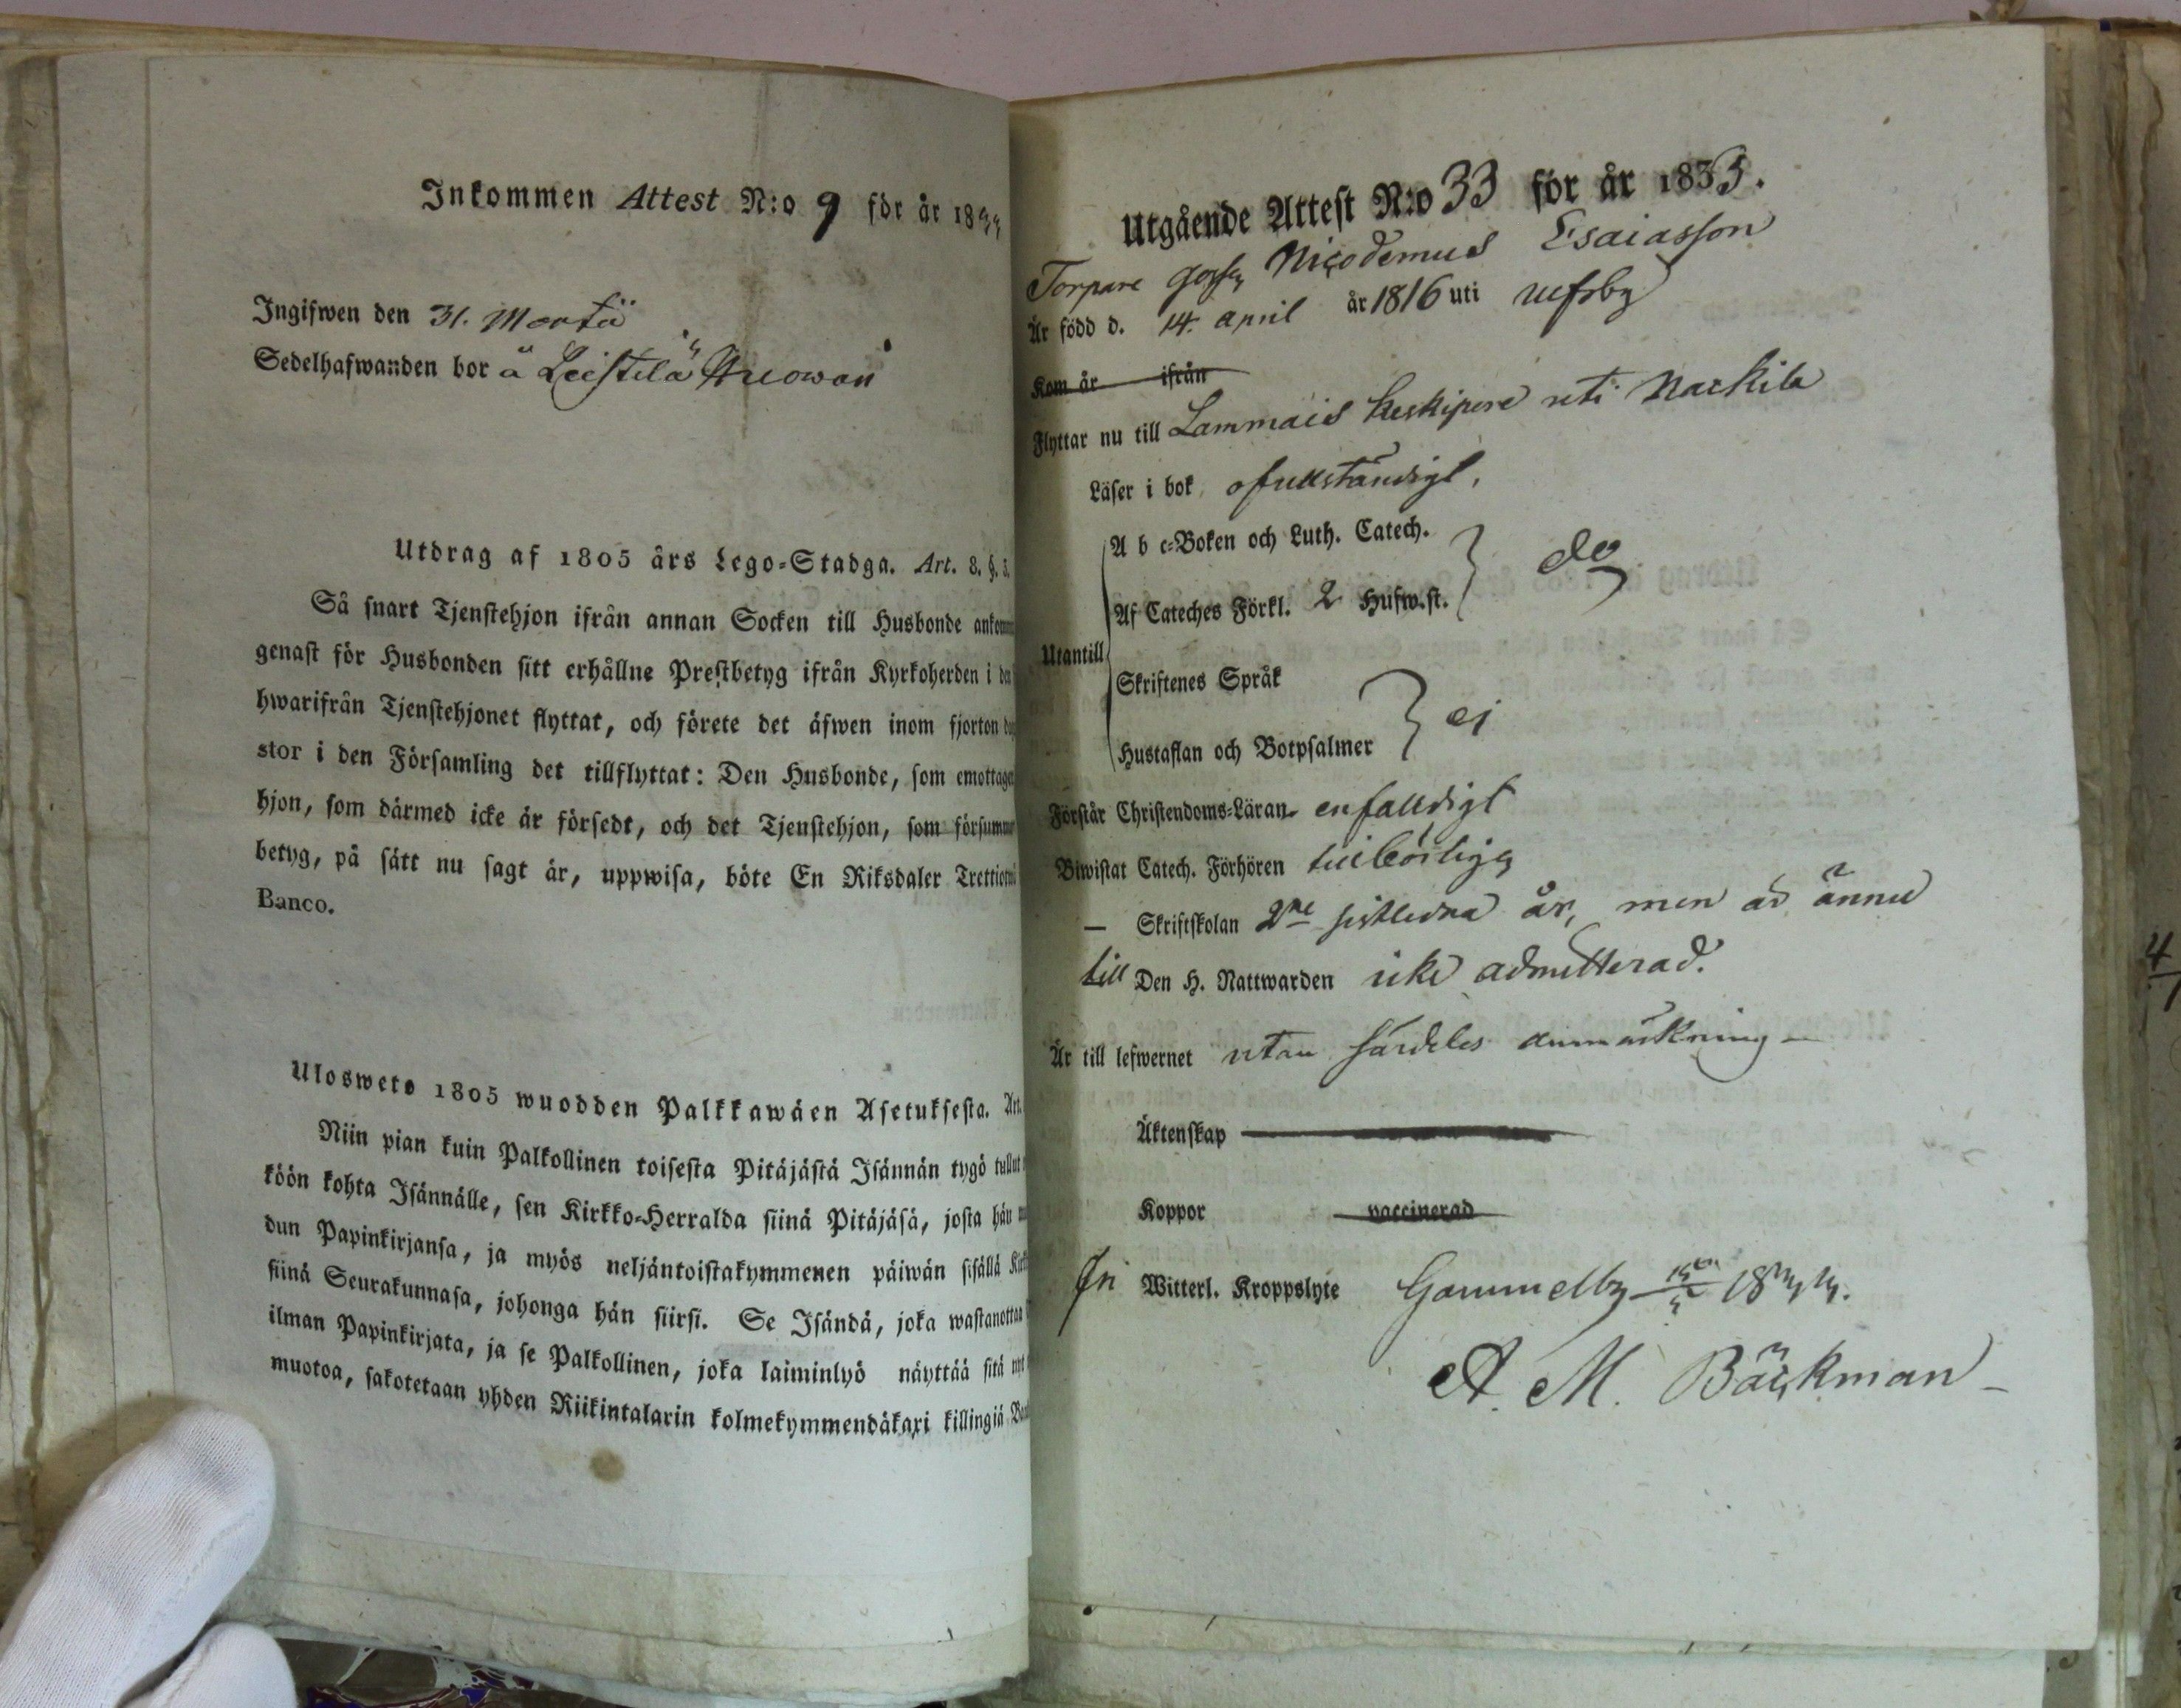 Inkommen Attest N:o 9 för år 1833
Ingifwen den 31. Martii
Sedelhafwanden bor å Leistilä
Utdrag af 1805 års Lego-Stadga. Art. 8. §. 5.
Så snart Tjenstehjon ifrån annan Socken till Husbonde ankomm
genast för Husbonden sitt erhållne Prestbetyg ifrån Kyrkoherden i den
hwarifrån Tjenstehjonet flyttat, och förete det äfwen inom fjorton dag
stor i den Församling det tillflyttat: Den Husbonde, som emottage
hjon, som därmed icke är försedt, och det Tjenstehjon, som försumme
betyg, på sätt nu sagt är, uppwisa, böte En Riksdaler Trettio
Banco.
Ulosweto 1805 wuodden Palkkawäen Asetuksesta. Art.
Niin pian kuin Palkollinen toisesta Pitäjästä Isännän tygö tullut
köön kohta Isännälle, sen Kirkko-Herralda siinä Pitäjäsä, josta hän
dun Papinkirjansa, ja myös neljäntoistakymmenen päiwän sisällä Kirk
siinä Seurakunnasa, johonga hän siirsi. Se Isändä, joka wastanottaa
ilman Papinkirjata, ja se Palkollinen, joka laiminlyö näyttää sitä nyt
muotoa, sakotetaan yhden Riikintalarin kolmekymmendäkaxi killingiä Ban
Utgående Attest N:o 33 för år 1833.
Torpare gossen Nicodemus Esaiasson
Är född d. 14. april år 1816 uti Ulfsby
Kom år ifrån
Flyttar nu till Lammais Keskipere uti Nackila
Läser i bok ofullständigt.
A b c-Boken och Luth. Catech.
do
Af Cateches Förkl. 2 Hufw.st.
Utantill
Skriftenes Språk
ej
Hustaflan och Botpsalmer
Förstår Christendoms-Läran enfalldigt
Biwistat Catech. Förhören tillbörligen
— Skriftskolan 2ne sistledna år, men är ännu
till Den H. Nattwarden icke admitterad.
Är till lefwernet utan särdeles anmärkning —
Äktenskap
Koppor vaccinerad
fri Witterl. Kroppslyte Gammelby 1833.
A. M. Bäckman